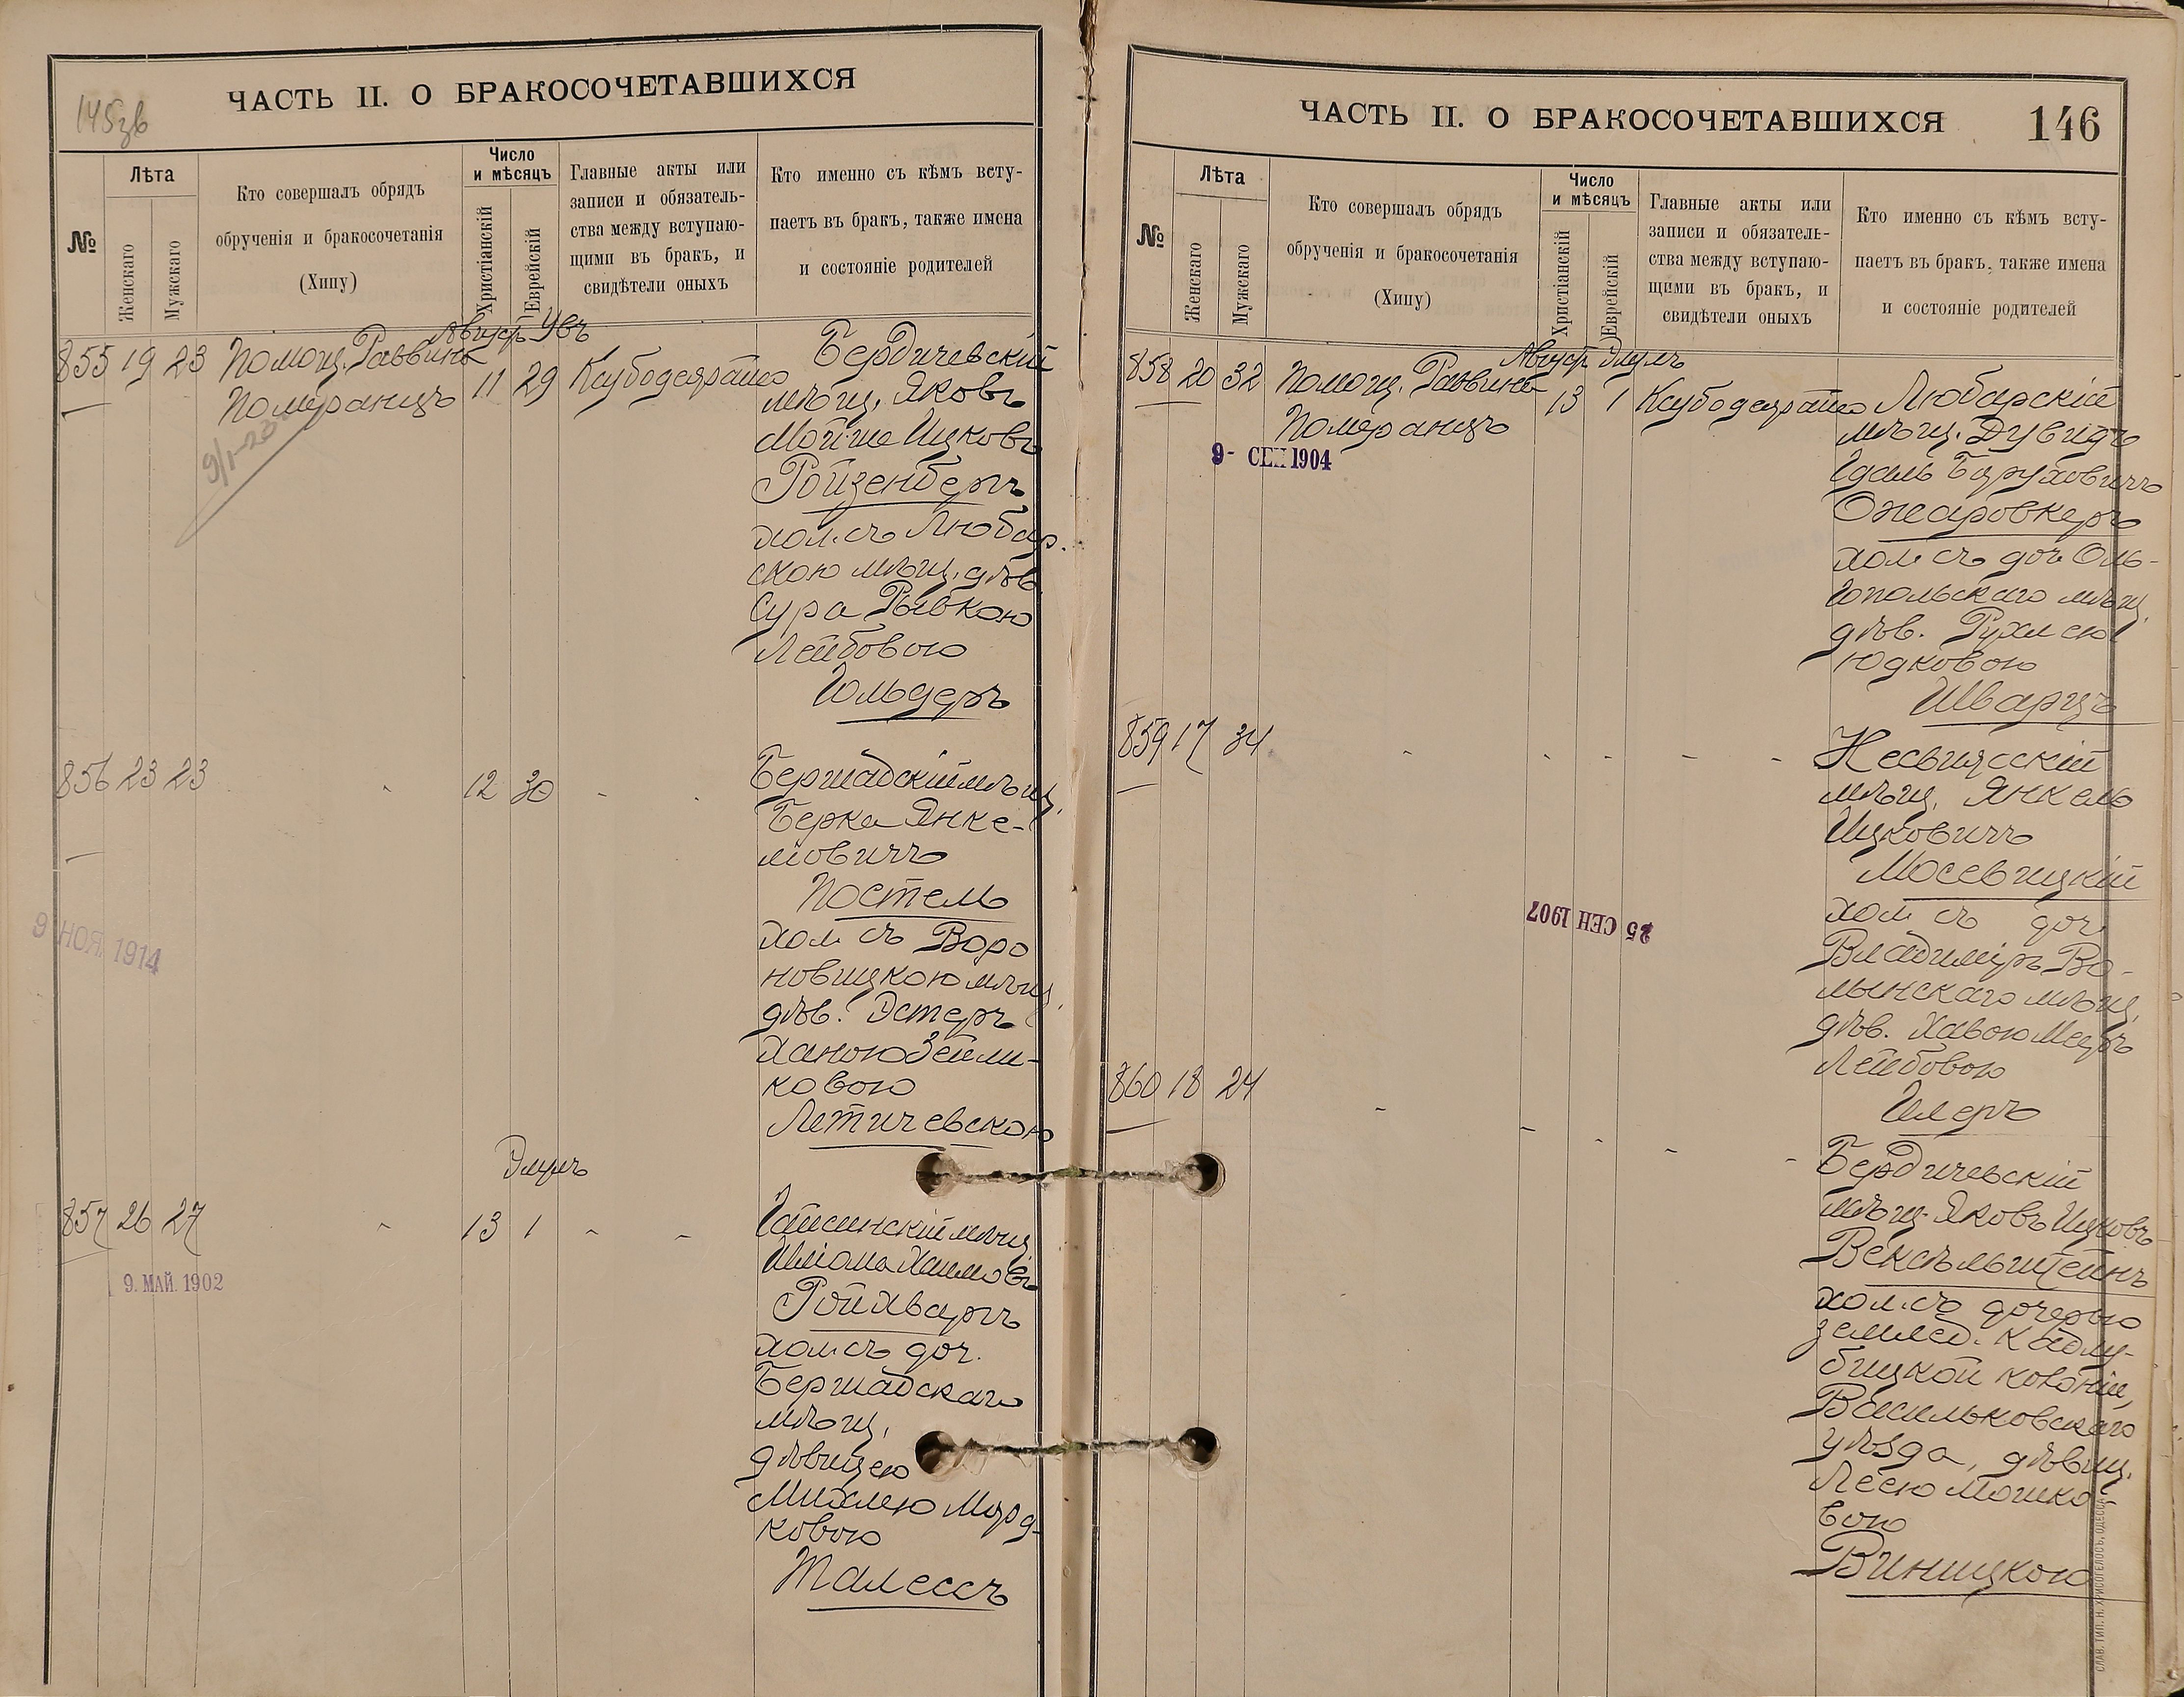 145зв
ЧАСТЬ II. О БРАКОСОЧЕТАВШИХСЯ
№
Лѣта
Женскаго
Мужскаго
Кто совершалъ обрядъ
обрученія и бракосочетанія
(Хипу)
Число
и мѣсяцъ
Христіанскій
Еврейскій
Главные акты или
записи и обязатель-
ства между вступаю-
щими въ бракъ, и
свидѣтели оныхъ
Кто именно съ кѣмъ всту-
паетъ въ бракъ, также имена
и состояніе родителей
855 19 23 Помощ. Раввина
Померанцъ
Август Увъ
11 29 Ксубодеярайсо
Бердичевскій
мѣщ. Яковъ
Мойше Ицковъ
Ройзенбергъ
хол. съ Любар-
скою мѣщ. дѣв.
Сура Рывкою
Лейбовою
Гольдеръ
856 23 23 12 30
Бершадскій мѣщ.
Берка Янке-
лiовичъ
Постель
хол съ Воро
новицкою мѣщ.
дѣв. Эстеръ
Ханою Зейли-
ковою
Летичевскою
9 НОЯ. 1914
Элулъ
857 26 27 13 1
Гайсинскій мѣщ.
Шліома Хаимовъ
Ройхваргъ
хол. съ доч.
Бершадскаго
мѣщ.
дѣвицею
Михлею Морд-
ковою
Талессъ
9. МАЙ. 1902
ЧАСТЬ II. О БРАКОСОЧЕТАВШИХСЯ
146
№
Лѣта
Женскаго
Мужскаго
Кто совершалъ обрядъ
обрученія и бракосочетанія
(Хипу)
Число
и мѣсяцъ
Христіанскій
Еврейскій
Главные акты или
записи и обязатель-
ства между вступаю-
щими въ бракъ, и
свидѣтели оныхъ
Кто именно съ кѣмъ всту-
паетъ въ бракъ, также имена
и состояніе родителей
858 20 32 Помощ. Раввина
Померанцъ
Август Элулъ
13 1 Ксубодеярайсо
9- СЕН 1904
Любарскій
мѣщ. Дувидъ
Гдаль Баруховичъ
Ожаровкеръ
хол съ доч Оль-
гопольскаго мѣщ.
дѣв. Рухлею
Юдковою
Шварцъ
859 17 34
Несвижсскій
мѣщ. Янкель
Ицковичъ
Мосевицкій
хол съ доч
Владиміръ Во-
лынскаго мѣщ.
дѣв. Хавою Меръ
Лейбовою
Гилеръ
25 СЕН 1907
860 18 24
Бердичевскій
мѣщ. Яковъ Ицковъ
Вексельштейнъ
хол. съ дочерью
землед. Кадлу-
бицкой колоніи,
Васильковскаго
уѣзда, дѣвиц.
Леею Мошко-
вою
Виницкою
СЛАВ. ТИП. Н. ХРИСОГЕЛОСЪ, ОДЕССА